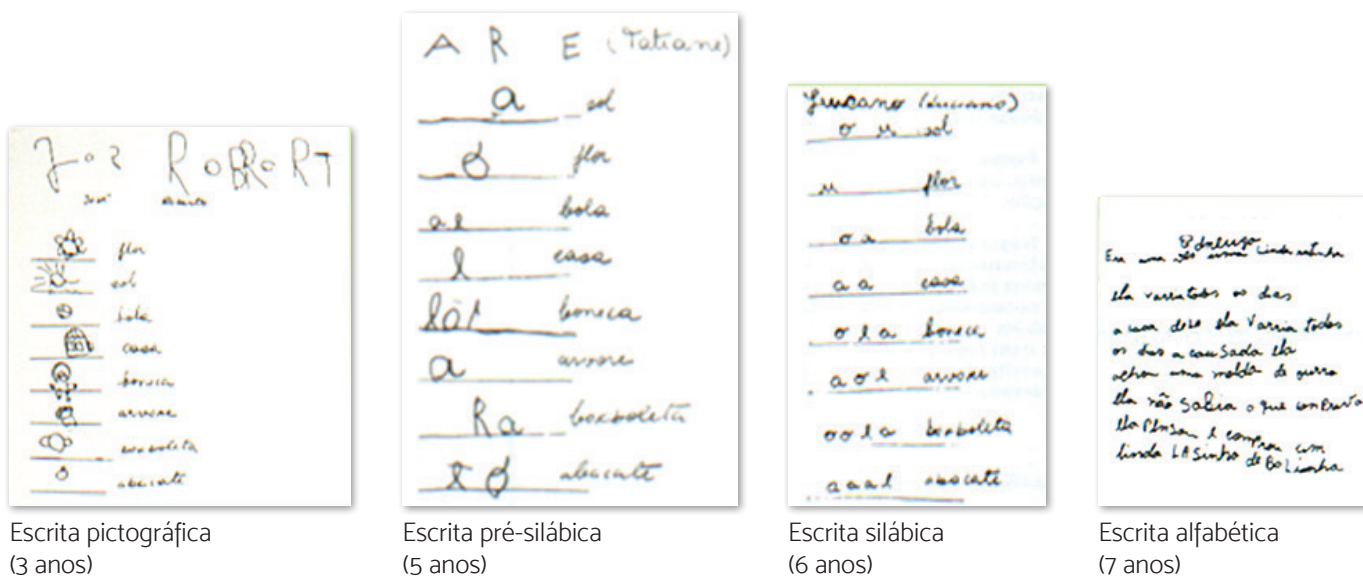 Joz RoBRoRT
flor
sol
bola
casa
boneca
arvore
borboleta
abacate
Escrita pictográfica
(3 anos)
A R E (Tatiane)
a sol
flor
ae bola
l casa
boneca
a arvore
Ra borboleta
abacate
Escrita pré-silábica
(5 anos)
(Luciano)
o u sol
u flor
o a bola
a a casa
o e a boneca
a o e arvore
o o e a borboleta
a a a e abacate
Escrita silábica
(6 anos)
Era uma uma linda
ela varria todos os dias
a casa dela ela varria todos
os dias a casa ela
achou uma
ela não sabia o que
ela pensou e comprou um
lindo LASinho de Bolinha
Escrita alfabética
(7 anos)